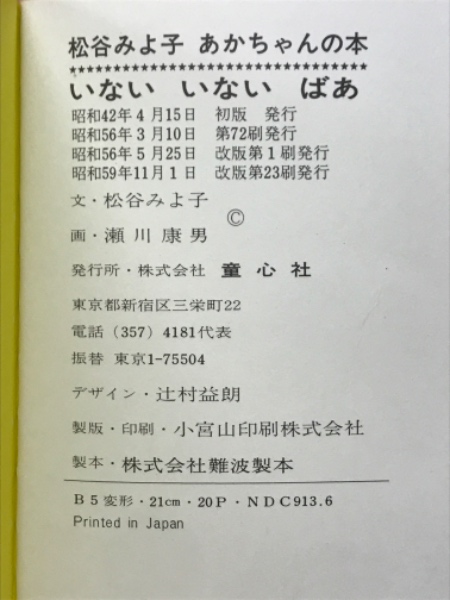 松谷みよ子 あかちゃんの本
★★★★★★★★★★★★★★★★★★★★★★★★★★★★★★★★★★
いない いない ばあ
昭和42年4月15日 初版 発行
昭和56年3月10日 第72刷発行
昭和56年5月25日 改版第1刷発行
昭和59年11月1日 改版第23刷発行
文・松谷みよ子
©
画・瀬川康男
発行所・株式会社 童心社
東京都新宿区三栄町22
電話(357)4181代表
振替 東京1-75504
デザイン・辻村益朗
製版・印刷・小宮山印刷株式会社
製本・株式会社難波製本
B5変形・21cm・20P・NDC913.6
Printed in Japan